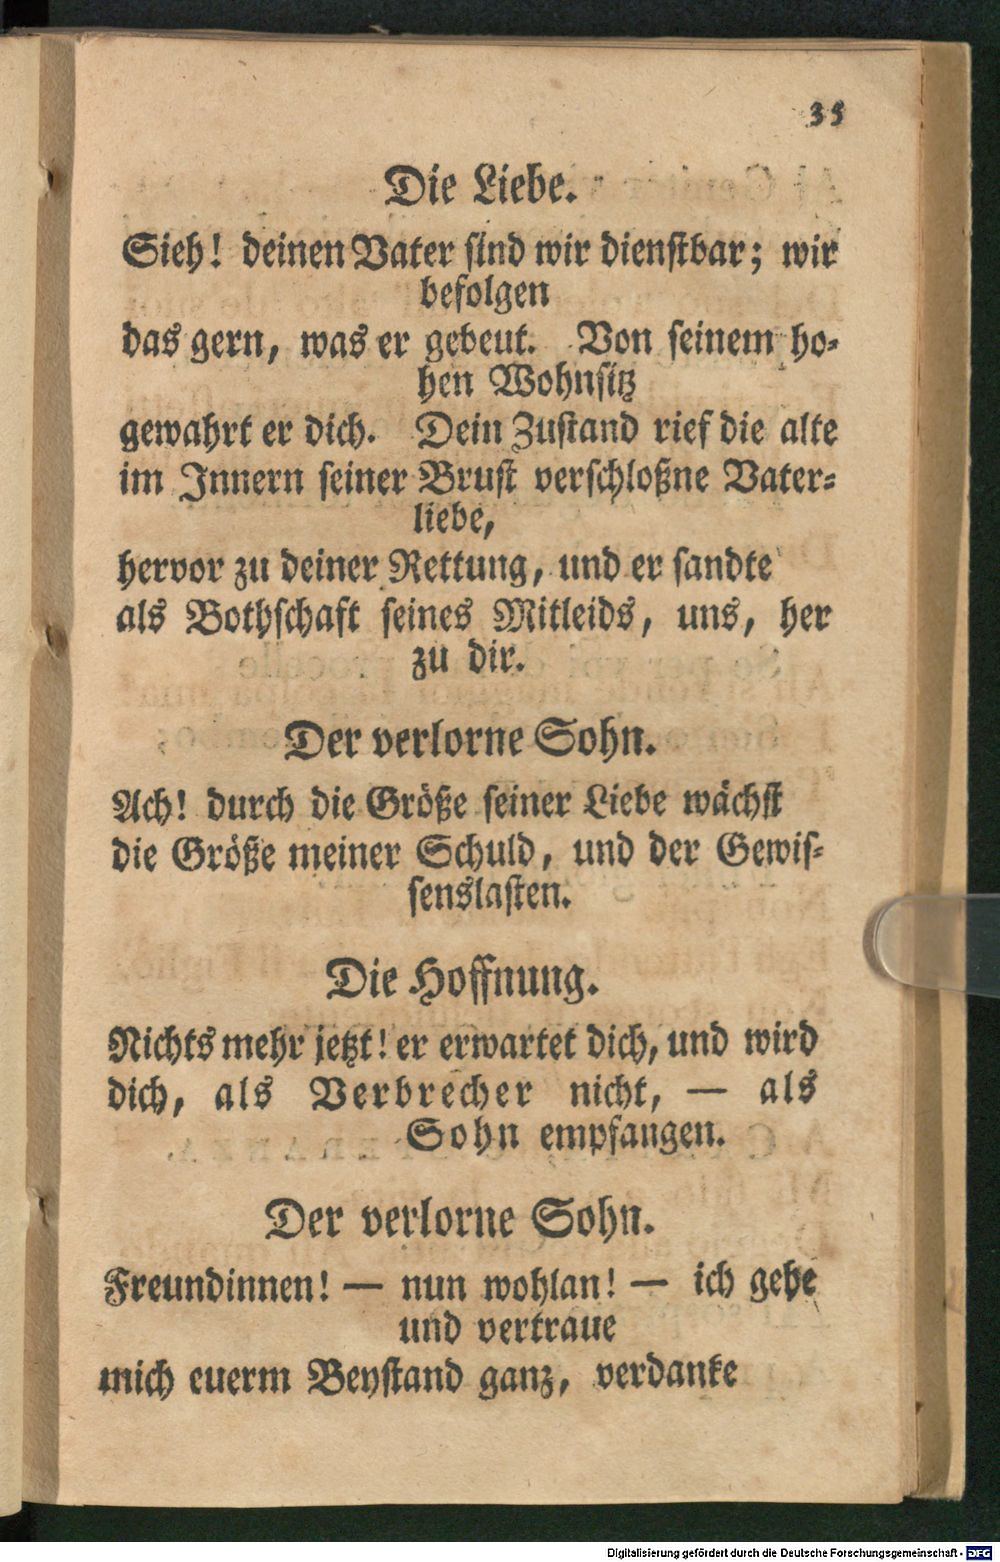 35
Die Liebe.
Sieh! deinen Vater sind wir dienstbar; wir
befolgen
das gern, was er gebeut. Von seinem ho-
hen Wohnsitz
gewahrt er dich. Dein Zustand rief die alte
im Innern seiner Brust verschloßne Vater-
liebe,
hervor zu deiner Rettung, und er sandte
als Bothschaft seines Mitleids, uns, her
zu dir.
Der verlorne Sohn.
Ach! durch die Größe seiner Liebe wächst
die Größe meiner Schuld, und der Gewis-
senslasten.
Die Hoffnung.
Nichts mehr jetzt! er erwartet dich, und wird
dich, als Verbrecher nicht, — als
Sohn empfangen.
Der verlorne Sohn.
Freundinnen! — nun wohlan! — ich gehe
und vertraue
mich euerm Beystand ganz, verdanke
Digitalisierung gefördert durch die Deutsche Forschungsgemeinschaft - DFG